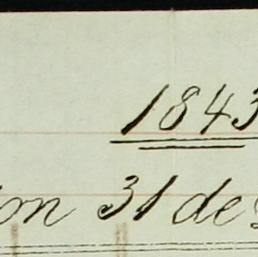 1843
on 31 de